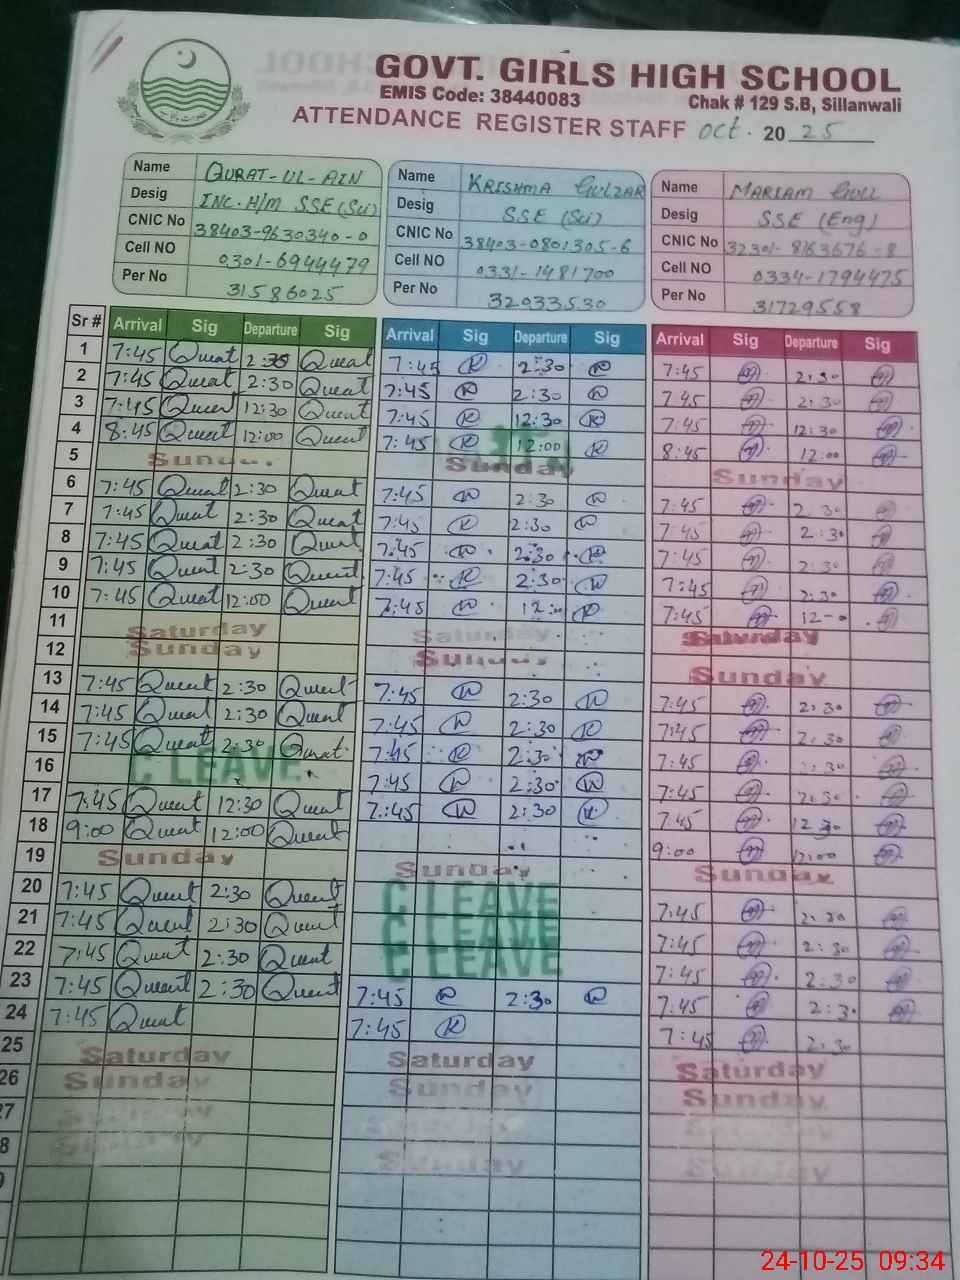 GOVT. GIRLS HIGH SCHOOL
EMIS Code: 38440083 Chak # 129 S.B, Sillanwali
ATTENDANCE REGISTER STAFF Oct. 2025
Name QURAT-UL-AIN Name KRISHMA GULZAR Name MARIAM GULL
Desig INC. H/M SSE (Sci) Desig SSE (Sci) Desig SSE (Eng)
CNIC No 38403-9630340-0 CNIC No 38403-0801305-6 CNIC No 32301-8163676-8
Cell NO 0301-6944479 Cell NO 0331-1481700 Cell NO 0334-1794475
Per No 31586025 Per No 32033530 Per No 31729558
Sr # Arrival Sig Departure Sig Arrival Sig Departure Sig Arrival Sig Departure Sig
1 7:45 Qurat 2:30 Qurat 7:45 K 2:30 K 7:45 2:30
2 7:45 Qurat 2:30 Qurat 7:45 K 2:30 K 7:45 2:30
3 7:45 Qurat 12:30 Qurat 7:45 K 12:30 K 7:45 12:30
4 8:45 Qurat 12:00 Qurat 7:45 K 12:00 K 8:45 12:00
5 Sunday Sunday Sunday
6 7:45 Qurat 2:30 Qurat 7:45 K 2:30 K 7:45 2:30
7 7:45 Qurat 2:30 Qurat 7:45 K 2:30 K 7:45 2:30
8 7:45 Qurat 2:30 Qurat 7:45 K 2:30 K 7:45 2:30
9 7:45 Qurat 2:30 Qurat 7:45 K 2:30 K 7:45 2:30
10 7:45 Qurat 12:00 Qurat 7:45 K 12:00 K 7:45 12-0
11 Saturday Saturday Saturday
12 Sunday Sunday Sunday
13 7:45 Qurat 2:30 Qurat 7:45 K 2:30 K 7:45 2:30
14 7:45 Qurat 2:30 Qurat 7:45 K 2:30 K 7:45 2:30
15 7:45 Qurat 2:30 Qurat 7:45 K 2:30 K 7:45 2:30
16 C LEAVE 7:45 K 2:30 K 7:45 2:30
17 7:45 Qurat 12:30 Qurat 7:45 K 2:30 K 7:45 12:30
18 9:00 Qurat 12:00 Qurat 9:00 12:00
19 Sunday Sunday Sunday
20 7:45 Qurat 2:30 Qurat C LEAVE 7:45 2:30
21 7:45 Qurat 2:30 Qurat C LEAVE 7:45 2:30
22 7:45 Qurat 2:30 Qurat C LEAVE 7:45 2:30
23 7:45 Qurat 2:30 Qurat 7:45 K 2:30 K 7:45 2:30
24 7:45 Qurat 7:45 K 7:45 2:30
25 Saturday Saturday Saturday
26 Sunday Sunday Sunday
24-10-25 09:34